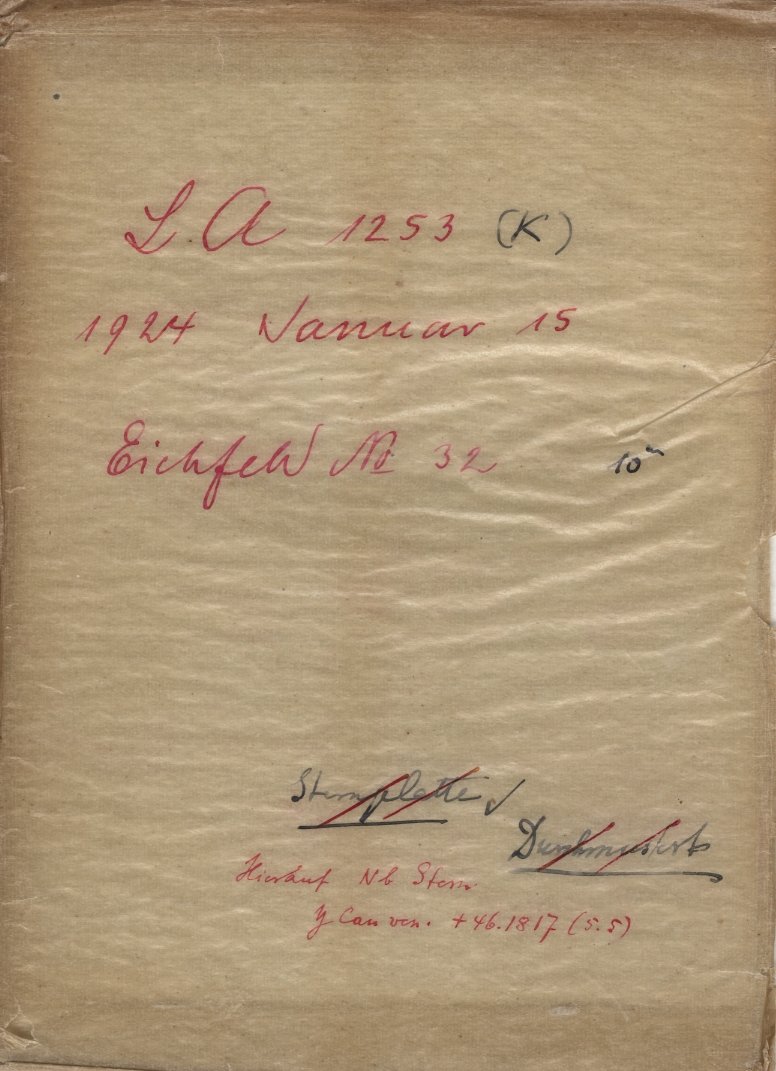 L. A 1253 (K)
1924 Januar 15
Eichfeld No 32 10m
Sternplatte
Durchmustert
Hierauf Nb Stern
Y Can ven. +46.1817 (5.5)